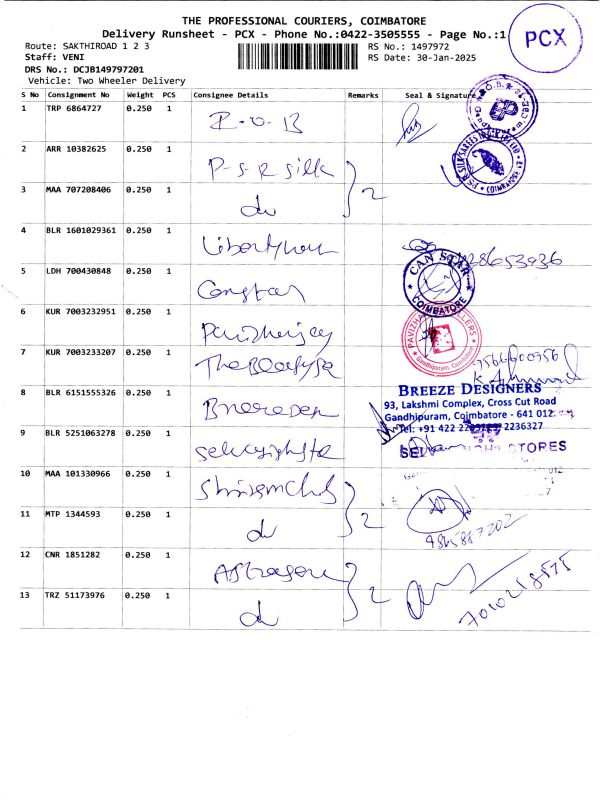 THE PROFESSIONAL COURIERS, COIMBATORE
Delivery Runsheet - PCX - Phone No.:0422-3505555 - Page No.:1
PCX
Route: SAKTHIROAD 1 2 3
RS No.: 1497972
Staff: VENI
RS Date: 30-Jan-2025
DRS No.: DCJB149797201
Vehicle: Two Wheeler Delivery
S No Consignment No Weight PCS Consignee Details Remarks Seal & Signature
1 TRP 6864727 0.250 1
2 ARR 10382625 0.250 1 P-S-R Silk
3 MAA 707208406 0.250 1 do 2
4 BLR 1601029361 0.250 1
5 LDH 700430848 0.250 1
CAN STAR
COIMBATORE
6 KUR 7003232951 0.250 1
7 KUR 7003233207 0.250 1
8 BLR 6151555326 0.250 1
BREEZE DESIGNERS
93, Lakshmi Complex, Cross Cut Road
Gandhipuram, Coimbatore - 641 012.
Tel: +91 422 2236327
9 BLR 5251063278 0.250 1
STORES
10 MAA 101330966 0.250 1
11 MTP 1344593 0.250 1 do 2
9865887202
12 CNR 1851282 0.250 1
13 TRZ 51173976 0.250 1 d 2